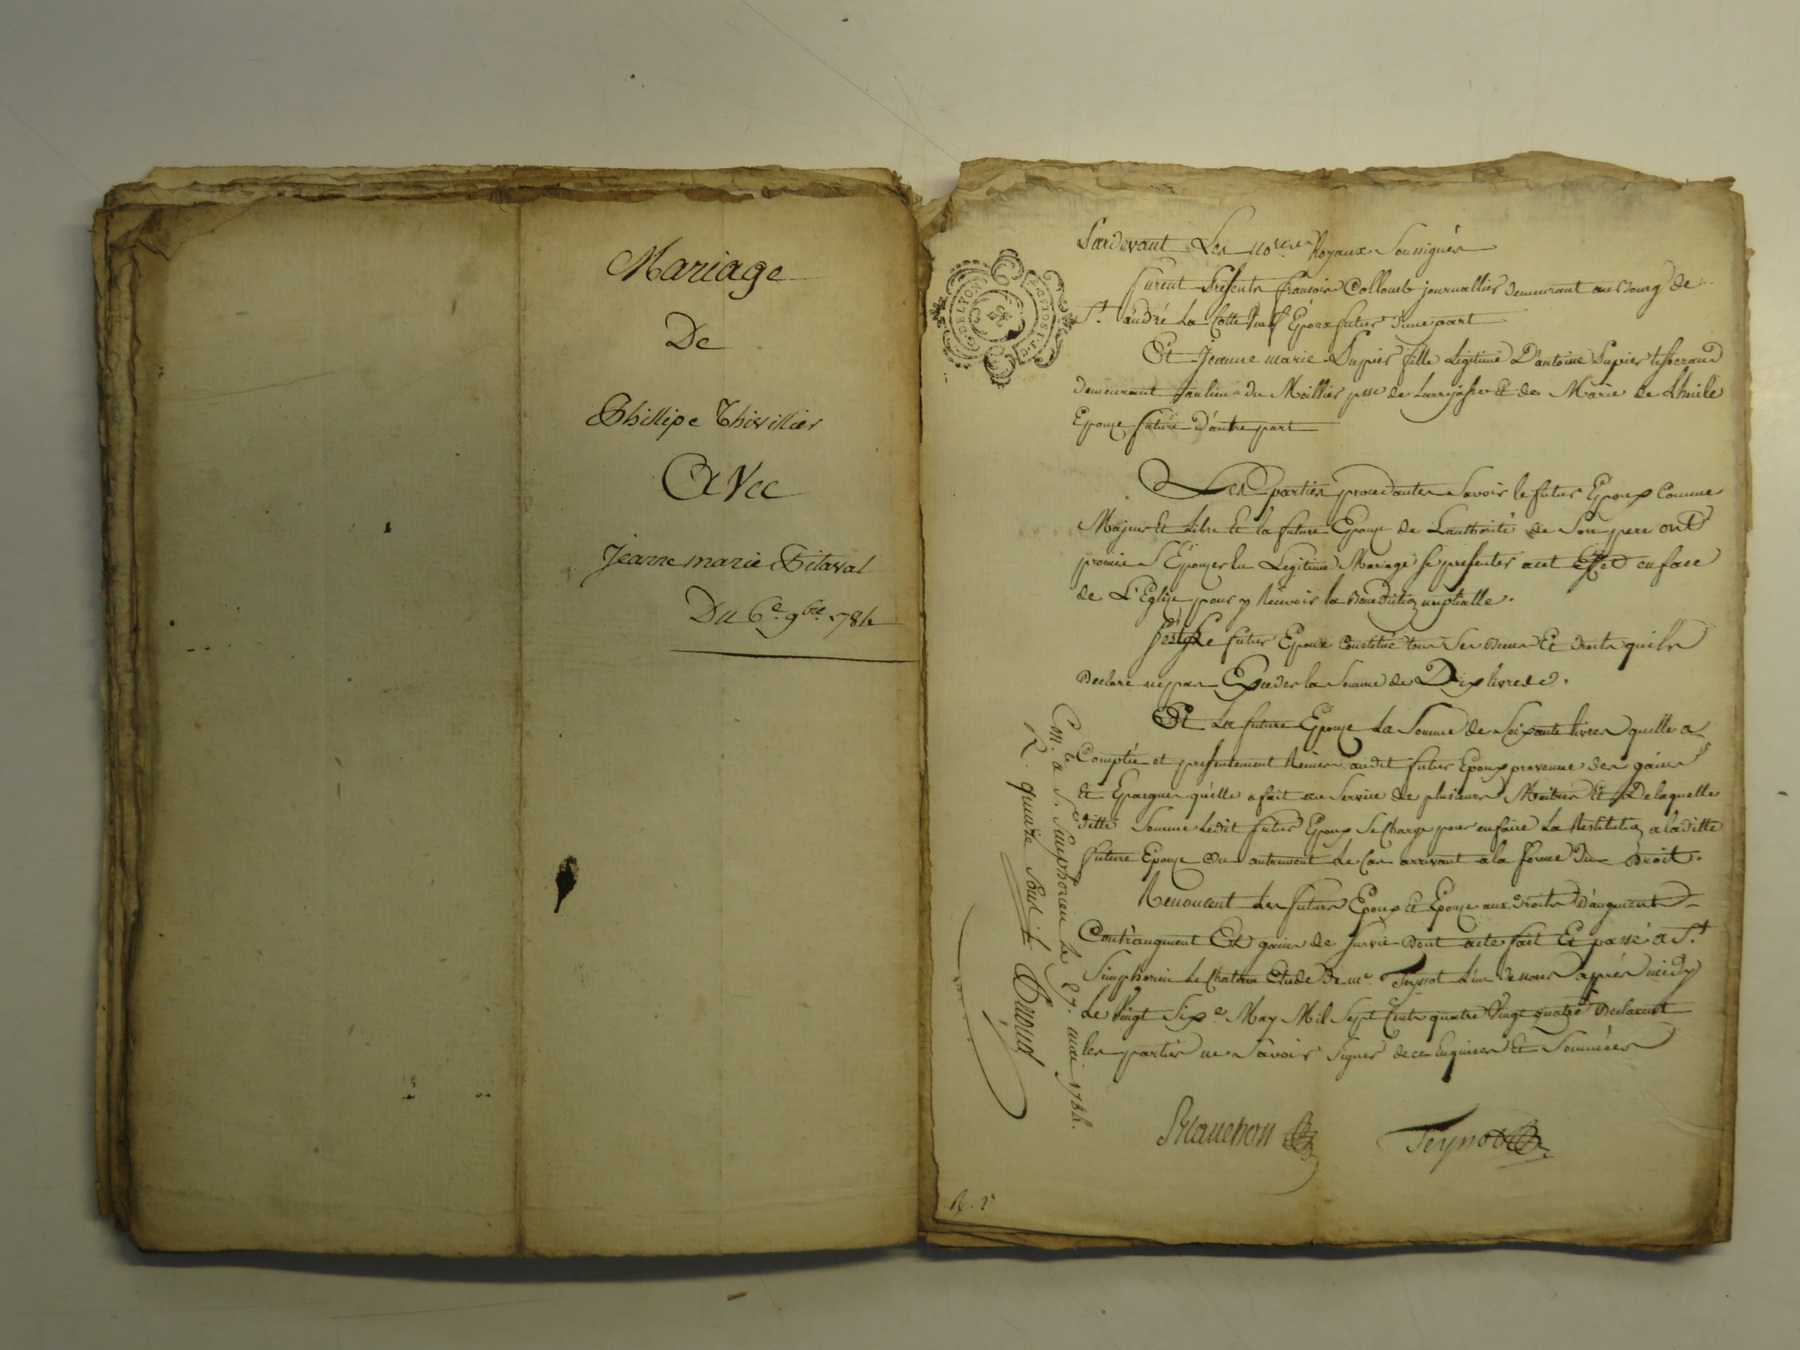 Mariage
De
Phillipe Thivillier
Avec
Jeanne marie Pitaval
Du 6e. 9bre. 784
Pardevant Les nores. Royaux Soussignés
furent Présents francois Colloueb journallier demeurant au Bourg de
St. andré La Cotte Epoux futur d'une part
Et Jeanne marie Supier fille Legitime D'antoine Supier tisserand
demeurant au lieu du Maillier psse de Larrajasse et de Marie de Lhuile
Epouze future d'autre part
Les parties procedantes Savoir le futur Epoux Comme
Majeur et Libre et la future Epouze de L'authorité de Son pere ont
promis S'Epouzer En Legitime Mariage se presenter a cet Effet en face
de L'Eglise pour y Recevoir la Benediction nuptialle.
Le futur Epoux Constitue tous Ses Biens Et droits quil
Declare ne pas Exceder la Somme de Dix livres.
Et La future Epouze La Somme de Soixante livres quelle a
Comptée et presentement Remise audit futur Epoux provenue des gains
et Epargnes quelle a fait au Service de plusieurs Maitres Et De laquelle
ditte Somme Ledit futur Epoux Se Charge pour en faire La Restitution a laditte
future Epouze ou autrement le Cas arrivant a la forme du Droit.
Renoncent Les futurs Epoux et Epouze aux Droits D'augment
Contr'augment Et gains de Survie Dont acte fait Et passé a St.
Simphorien Le Chateau Etude De me. Teynot L'un de nous après midy
Le Vingt Sixe. May Mil Sept Cent quatre Vingt quatre Declarent
les parties ne Savoir Signer de ce Enquises Et Sommées
Blanchon
Teynot
Con.lé a St. Simphorien le 27. mai 1784.
R. quinze sous